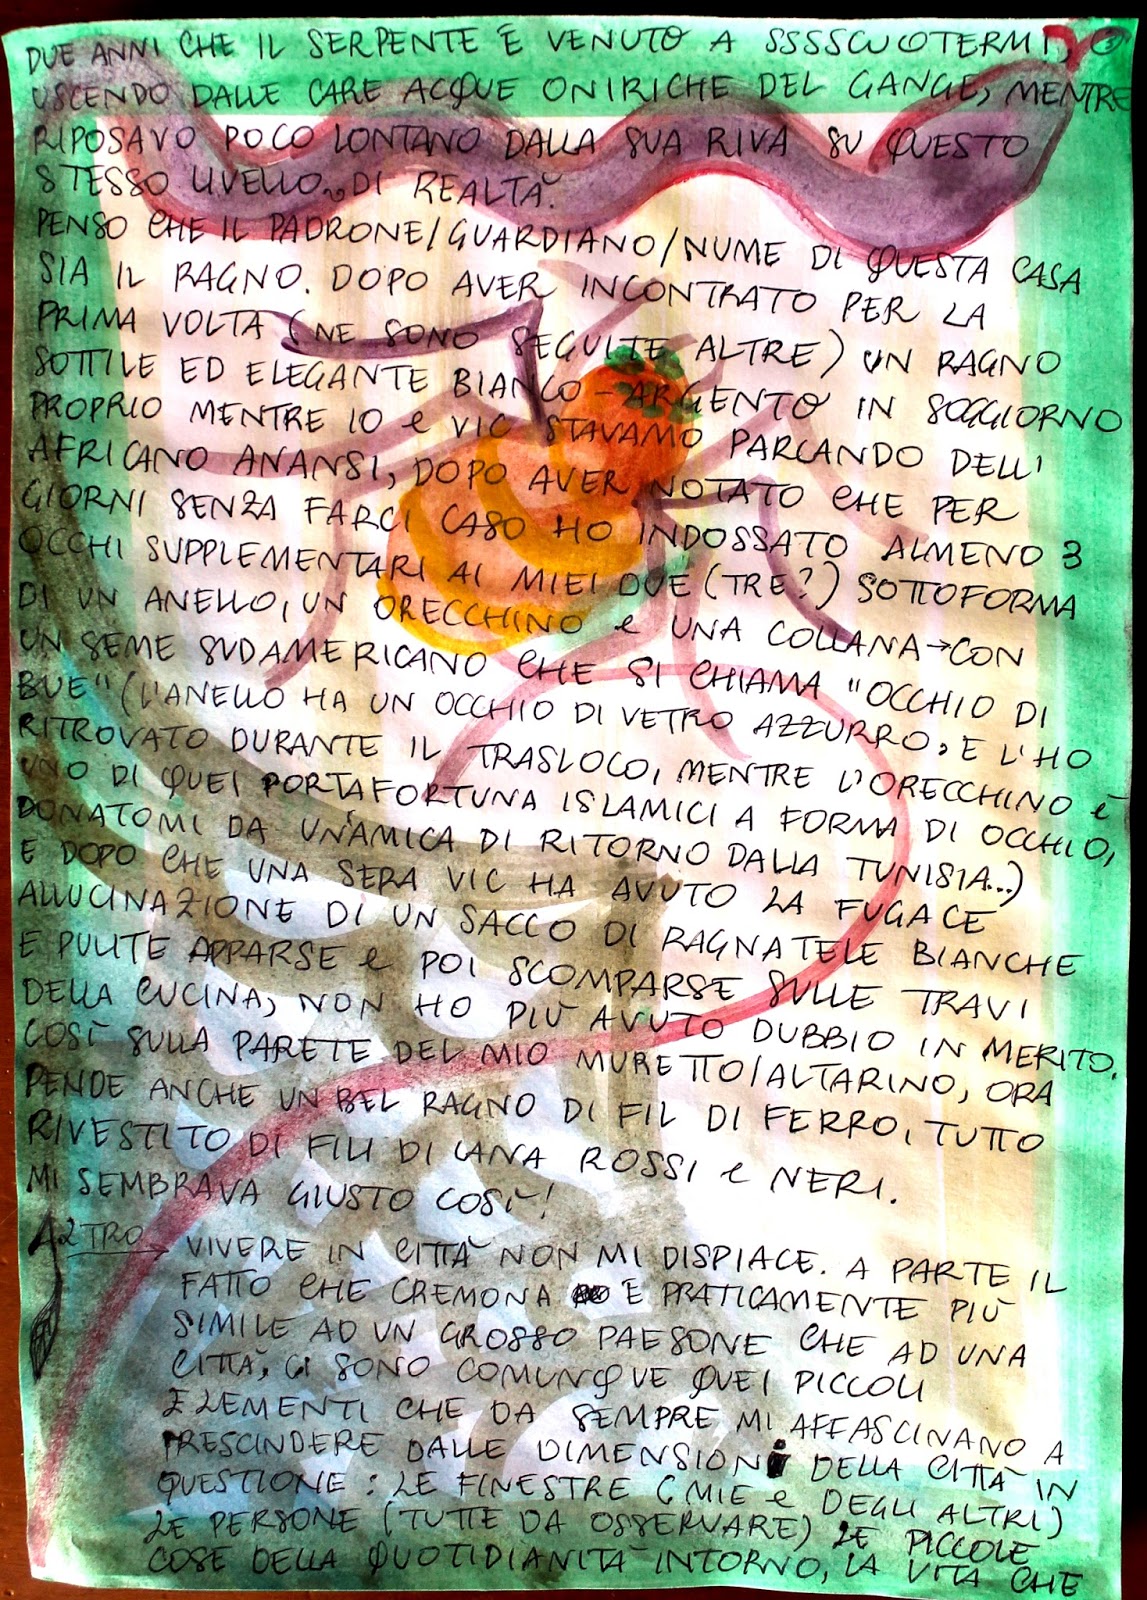 DUE ANNI CHE IL SERPENTE È VENUTO A SSSSCUOTERMI,
USCENDO DALLE CARE ACQUE ONIRICHE DEL GANGE, MENTRE
RIPOSAVO POCO LONTANO DALLA SUA RIVA SU QUESTO
STESSO LIVELLO DI REALTÀ.
PENSO CHE IL PADRONE/GUARDIANO/NUME DI QUESTA CASA
SIA IL RAGNO. DOPO AVER INCONTRATO PER LA
PRIMA VOLTA (NE SONO SEGUITE ALTRE) UN RAGNO
SOTTILE ED ELEGANTE BIANCO-ARGENTO IN SOGGIORNO
PROPRIO MENTRE IO e VIC STAVAMO PARLANDO DELL'
AFRICANO ANANSI, DOPO AVER NOTATO CHE PER
GIORNI SENZA FARCI CASO HO INDOSSATO ALMENO 3
OCCHI SUPPLEMENTARI AI MIEI DUE (TRE?) SOTTOFORMA
DI UN ANELLO, UN ORECCHINO e UNA COLLANA→CON
UN SEME SUDAMERICANO CHE SI CHIAMA "OCCHIO DI
BUE" (L'ANELLO HA UN OCCHIO DI VETRO AZZURRO, E L'HO
RITROVATO DURANTE IL TRASLOCO, MENTRE L'ORECCHINO È
UNO DI QUEI PORTAFORTUNA ISLAMICI A FORMA DI OCCHIO,
DONATOMI DA UN'AMICA DI RITORNO DALLA TUNISIA...)
E DOPO CHE UNA SERA VIC HA AVUTO LA FUGACE
ALLUCINAZIONE DI UN SACCO DI RAGNATELE BIANCHE
E PULITE APPARSE e POI SCOMPARSE SULLE TRAVI
DELLA CUCINA, NON HO PIÙ AVUTO DUBBIO IN MERITO.
COSÌ SULLA PARETE DEL MIO MURETTO/ALTARINO, ORA
PENDE ANCHE UN BEL RAGNO DI FIL DI FERRO, TUTTO
RIVESTITO DI FILI DI LANA ROSSI e NERI.
MI SEMBRAVA GIUSTO COSÌ!
ALTRO VIVERE IN CITTÀ NON MI DISPIACE. A PARTE IL
FATTO CHE CREMONA È PRATICAMENTE PIÙ
SIMILE AD UN GROSSO PAESONE CHE AD UNA
CITTÀ, CI SONO COMUNQUE QUEI PICCOLI
ELEMENTI CHE DA SEMPRE MI AFFASCINANO A
PRESCINDERE DALLE DIMENSIONI DELLA CITTÀ IN
QUESTIONE: LE FINESTRE (MIE e DEGLI ALTRI)
LE PERSONE (TUTTE DA OSSERVARE) LE PICCOLE
COSE DELLA QUOTIDIANITÀ INTORNO, LA VITA CHE